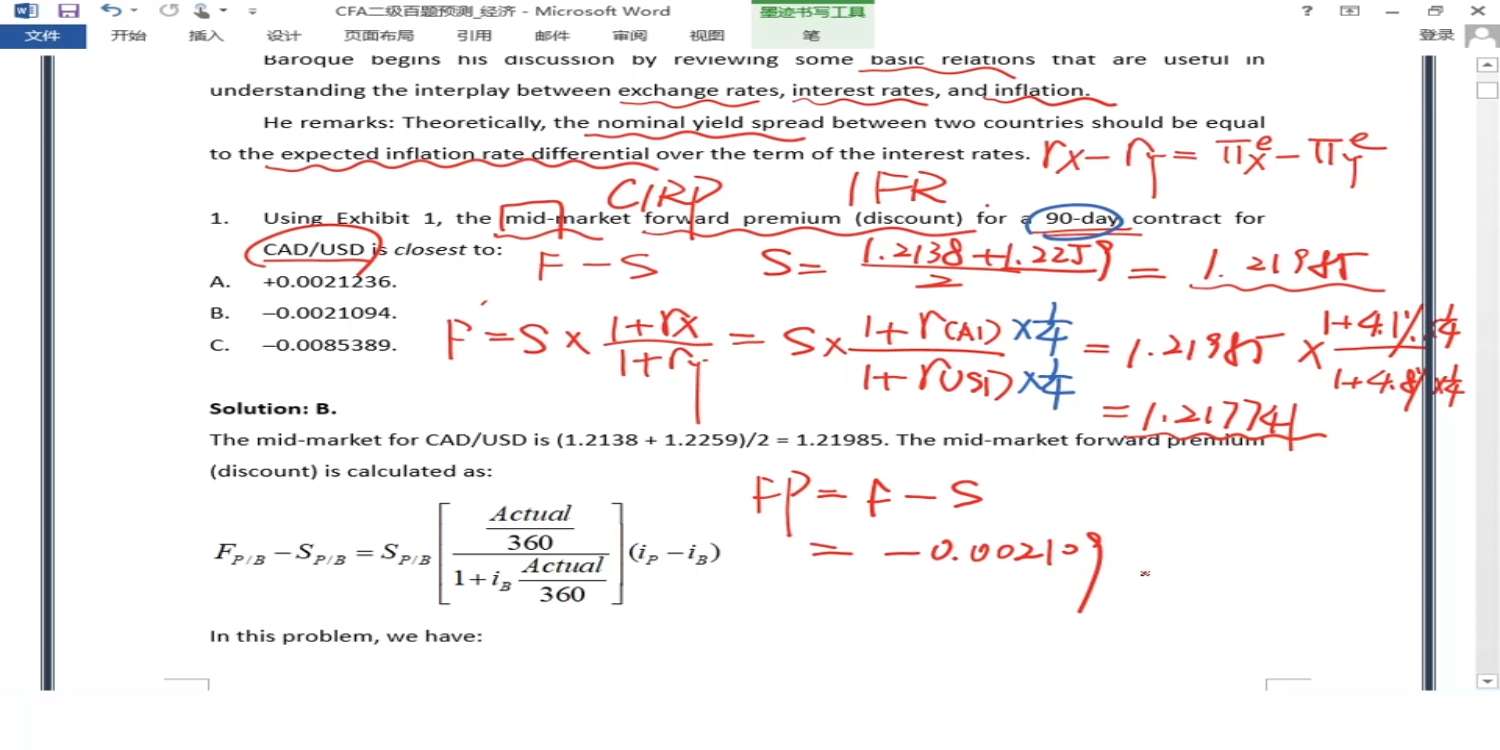 CFA二级百题预测_经济 - Microsoft Word
墨迹书写工具
文件 开始 插入 设计 页面布局 引用 邮件 审阅 视图 笔 登录
Baroque begins his discussion by reviewing some basic relations that are useful in
understanding the interplay between exchange rates, interest rates, and inflation.
He remarks: Theoretically, the nominal yield spread between two countries should be equal
to the expected inflation rate differential over the term of the interest rates.
rx - ry = πx^e - πy^e
CIRP IFR
1. Using Exhibit 1, the mid-market forward premium (discount) for a 90-day contract for
CAD/USD is closest to:
F - S S = (1.2138 + 1.2259)/2 = 1.21985
A. +0.0021236.
B. –0.0021094.
C. –0.0085389.
F = S × (1+rx)/(1+ry) = S × (1+rCAD × 1/4)/(1+rUSD × 1/4) = 1.21985 × (1+4.1% × 1/4)/(1+4.8% × 1/4)
= 1.217741
Solution: B.
The mid-market for CAD/USD is (1.2138 + 1.2259)/2 = 1.21985. The mid-market forward premium
(discount) is calculated as:
FP = F - S
= -0.002109
F_P/B − S_P/B = S_P/B [ (Actual/360) / (1 + i_B Actual/360) ] (i_P − i_B)
In this problem, we have: